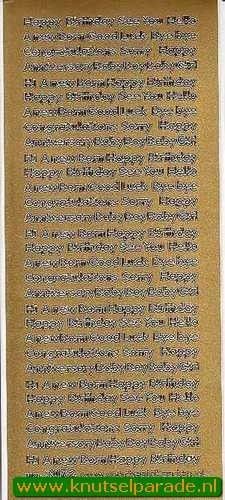 Happy Birthday See You Hello
A new Born Good Luck Bye bye
Congratulations Sorry Happy
Anniversary Baby Boy Baby Girl
Hi A new Born Happy Birthday
Happy Birthday See You Hello
A new Born Good Luck Bye bye
Congratulations Sorry Happy
Anniversary Baby Boy Baby Girl
Hi A new Born Happy Birthday
Happy Birthday See You Hello
A new Born Good Luck Bye bye
Congratulations Sorry Happy
Anniversary Baby Boy Baby Girl
Hi A new Born Happy Birthday
Happy Birthday See You Hello
A new Born Good Luck Bye bye
Congratulations Sorry Happy
Anniversary Baby Boy Baby Girl
Hi A new Born Happy Birthday
Happy Birthday See You Hello
A new Born Good Luck Bye bye
Congratulations Sorry Happy
Anniversary Baby Boy Baby Girl
Hi A new Born Happy Birthday
Happy Birthday See You Hello
A new Born Good Luck Bye bye
Congratulations Sorry Happy
Anniversary Baby Boy Baby Girl
Hi A new Born Happy Birthday
www.knutselparade.nl